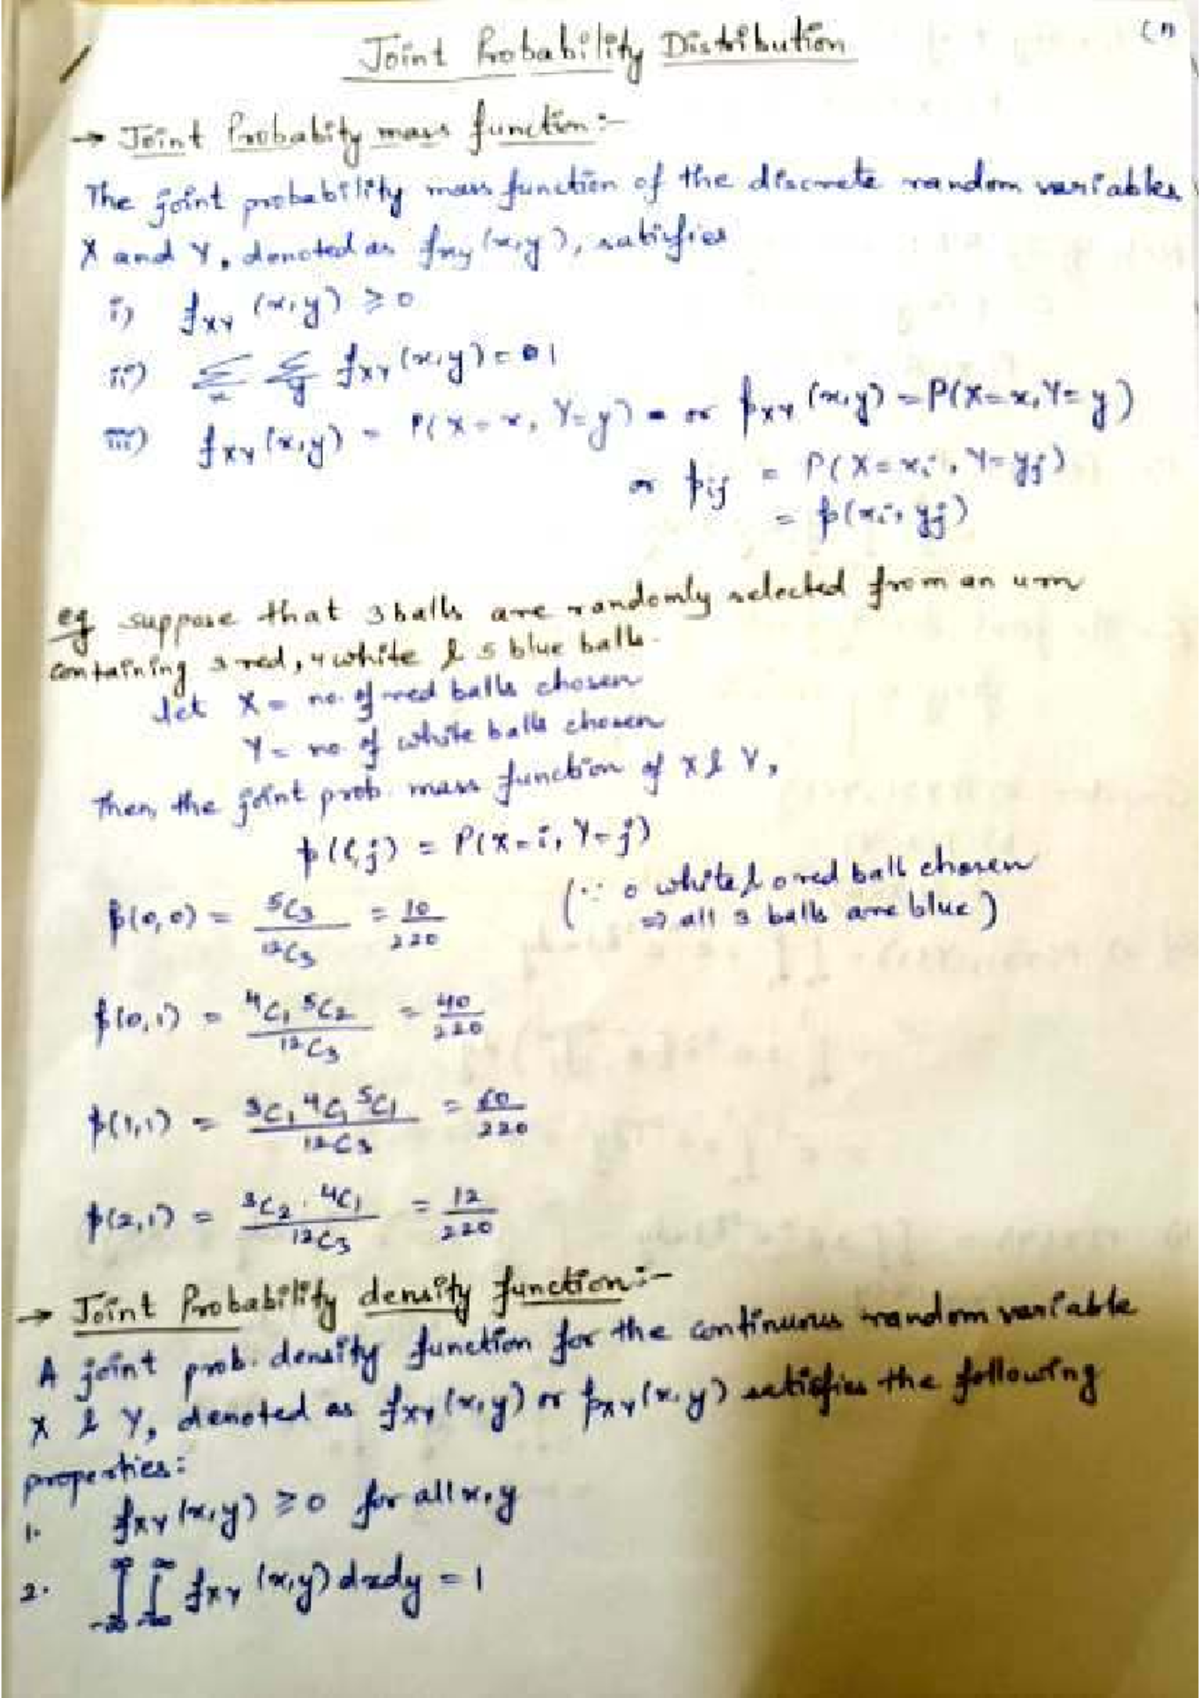 (1)
Joint Probability Distribution
→ Joint Probabity mass function:-
The joint probability mass function of the discrete random variables
X and Y, denoted as fxy(x,y), satisfies
i) f_XY (x,y) ≥ 0
ii) Σ_x Σ_y f_XY (x,y) = 1
iii) f_XY (x,y) = P(X=x, Y=y) = or p_XY (x,y) = P(X=x, Y=y)
or p_ij = P(X=x_i, Y=y_j)
= p(x_i, y_j)
eg suppose that 3 balls are randomly selected from an urn
containing 3 red, 4 white & 5 blue balls.
let X = no. of red balls chosen
Y = no of white balls chosen
Then, the joint prob. mass function of X & Y,
p(i,j) = P(X=i, Y=j)
p(0,0) = ⁵C₃ / ¹²C₃ = 10/220 (∵ 0 white & 0 red ball chosen
⇒ all 3 balls are blue)
p(0,1) = ⁴C₁ ⁵C₂ / ¹²C₃ = 40/220
p(1,1) = ³C₁ ⁴C₁ ⁵C₁ / ¹²C₃ = 60/220
p(2,1) = ³C₂ . ⁴C₁ / ¹²C₃ = 12/220
→ Joint Probability density function:-
A joint prob. density function for the continuous random variable
X & Y, denoted as f_XY (x,y) or p_XY (x,y) satisfies the following
properties:
1. f_XY (x,y) ≥ 0 for all x,y
2. ∫_-∞^∞ ∫_-∞^∞ f_XY (x,y) dxdy = 1